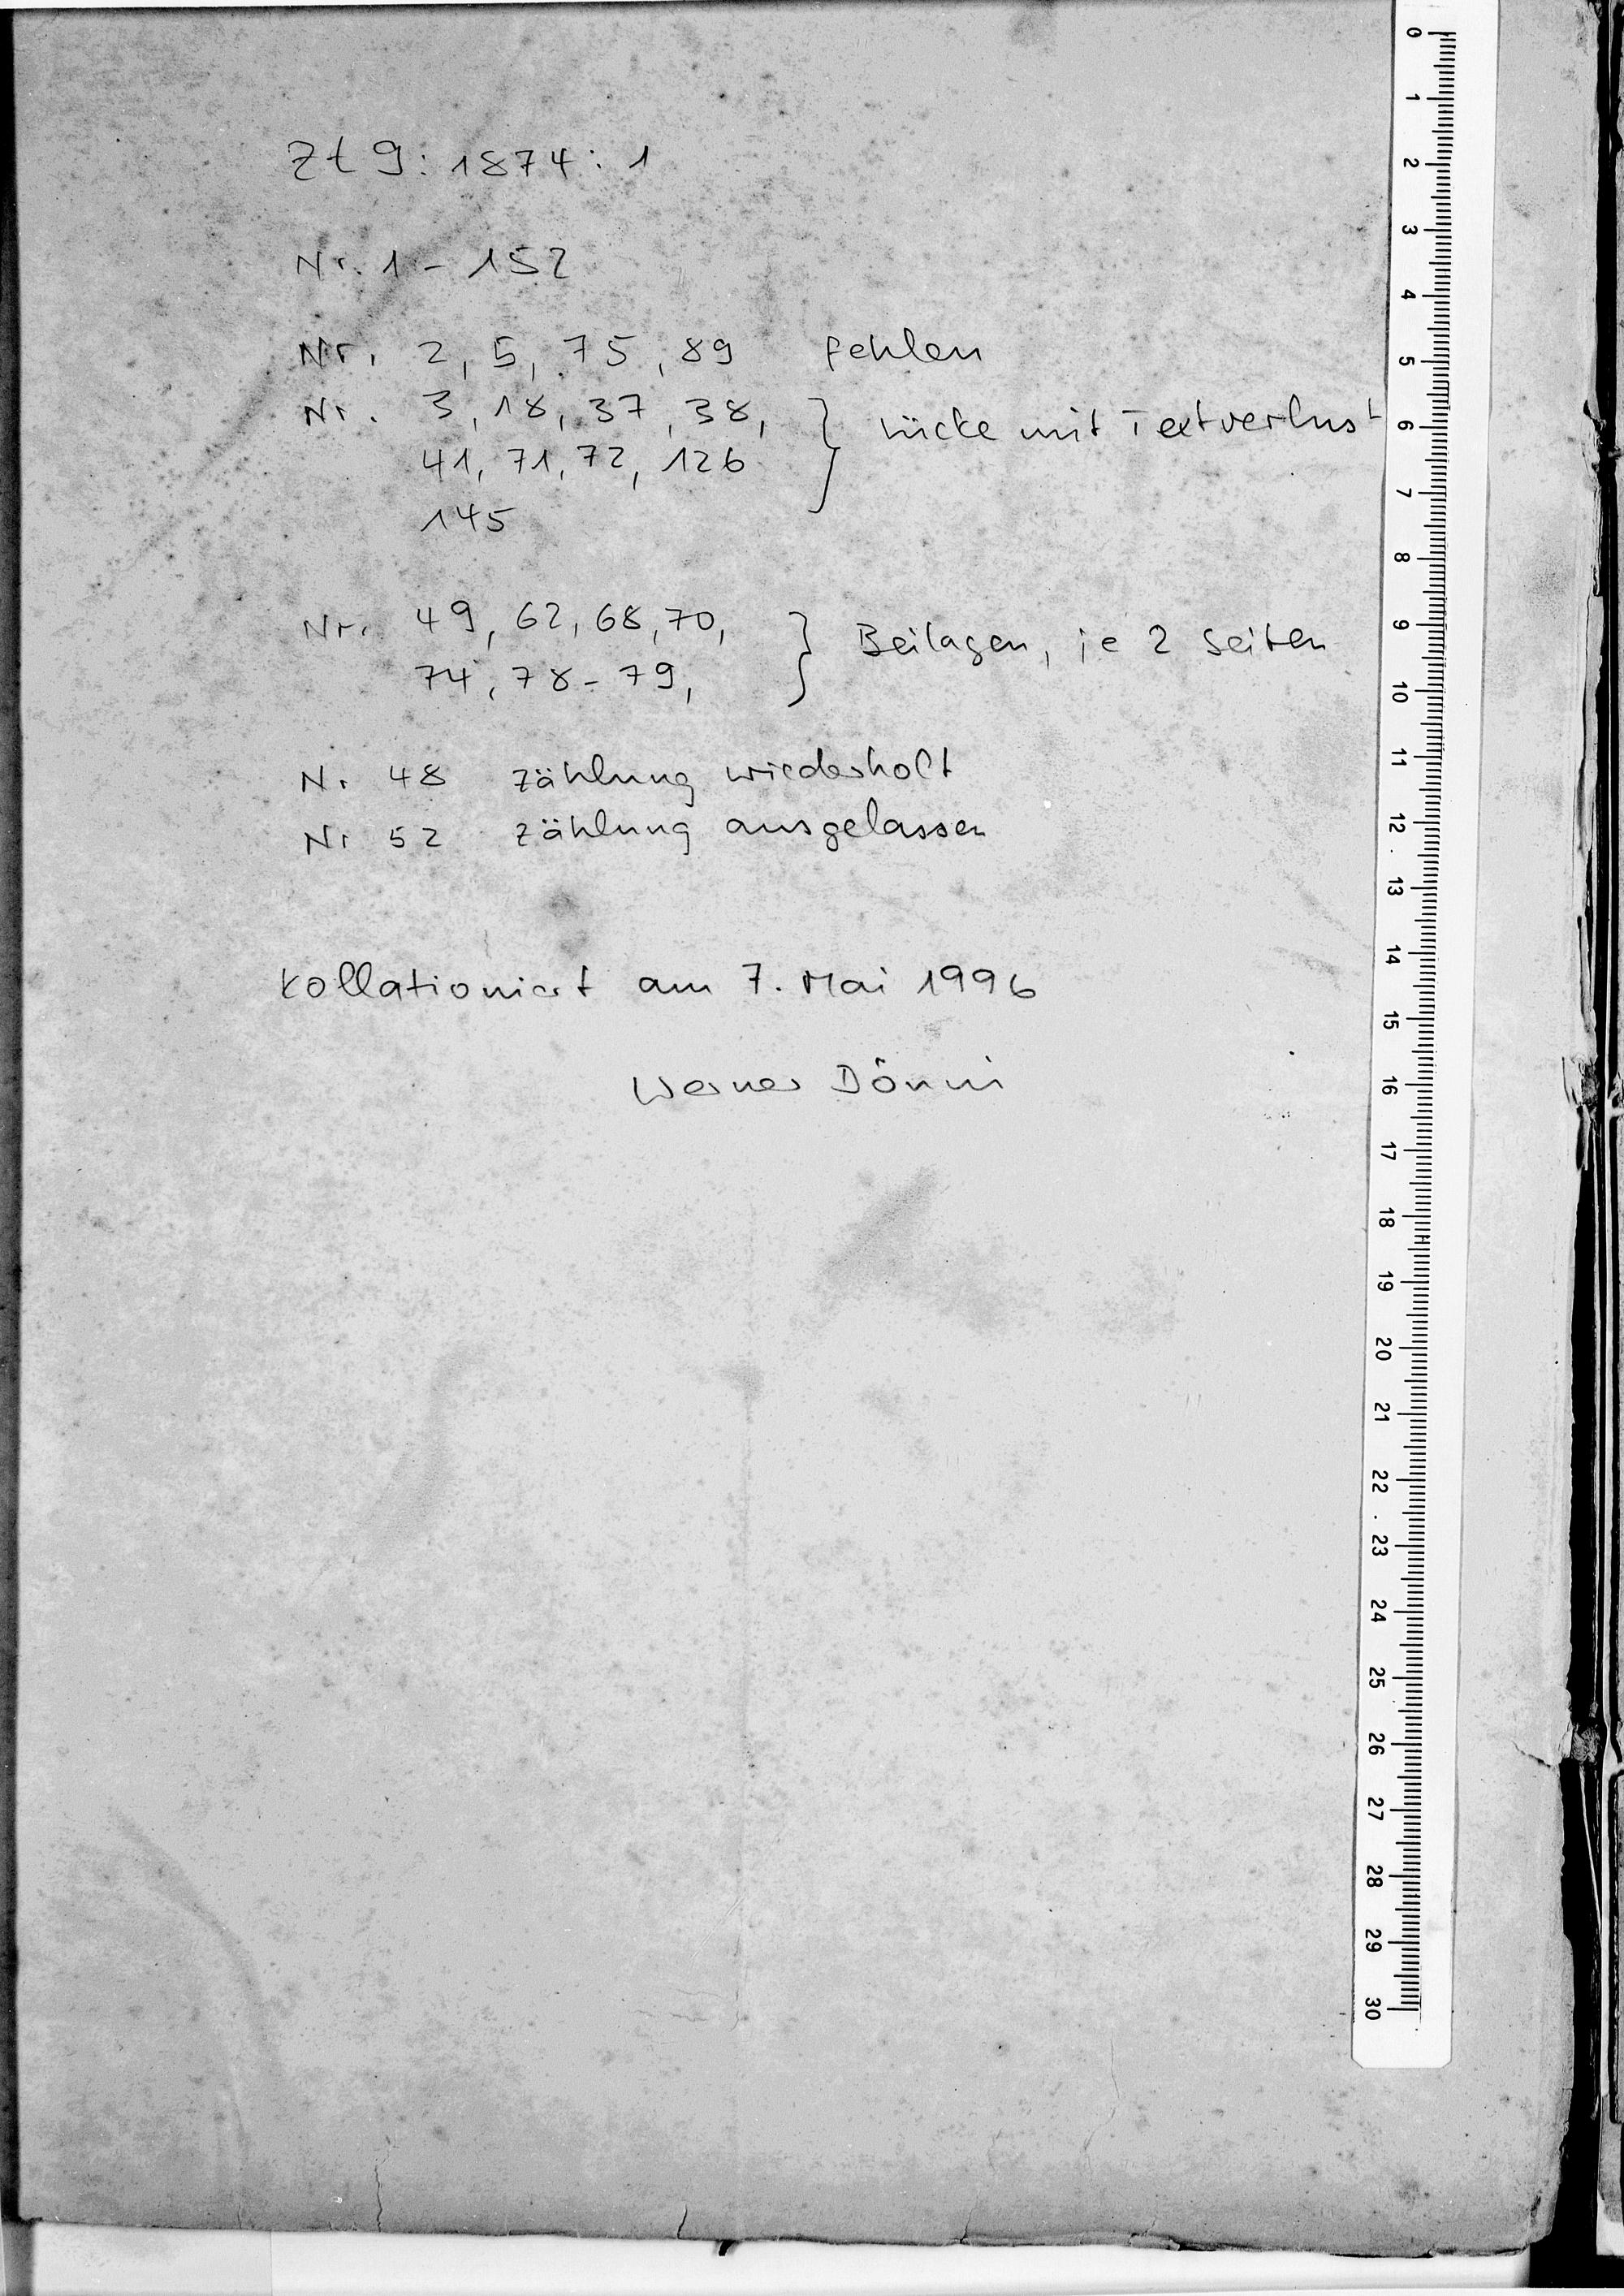 Zt 9: 1874: 1
Nr. 1 - 152
Nr. 2, 5, 75, 89 fehlen
Nr. 3, 18, 37, 38, } Lücke mit Textverlust
41, 71, 72, 126
145
Nr. 49, 62, 68, 70, } Beilagen, je 2 Seiten
74, 78 - 79,
Nr 48 Zählung wiederholt
Nr 52 Zählung ausgelassen
Kollationiert am 7. Mai 1996
Werner Dönni
0
1
2
3
4
5
6
7
8
9
10
11
12
13
14
15
16
17
18
19
20
21
22
23
24
25
26
27
28
29
30